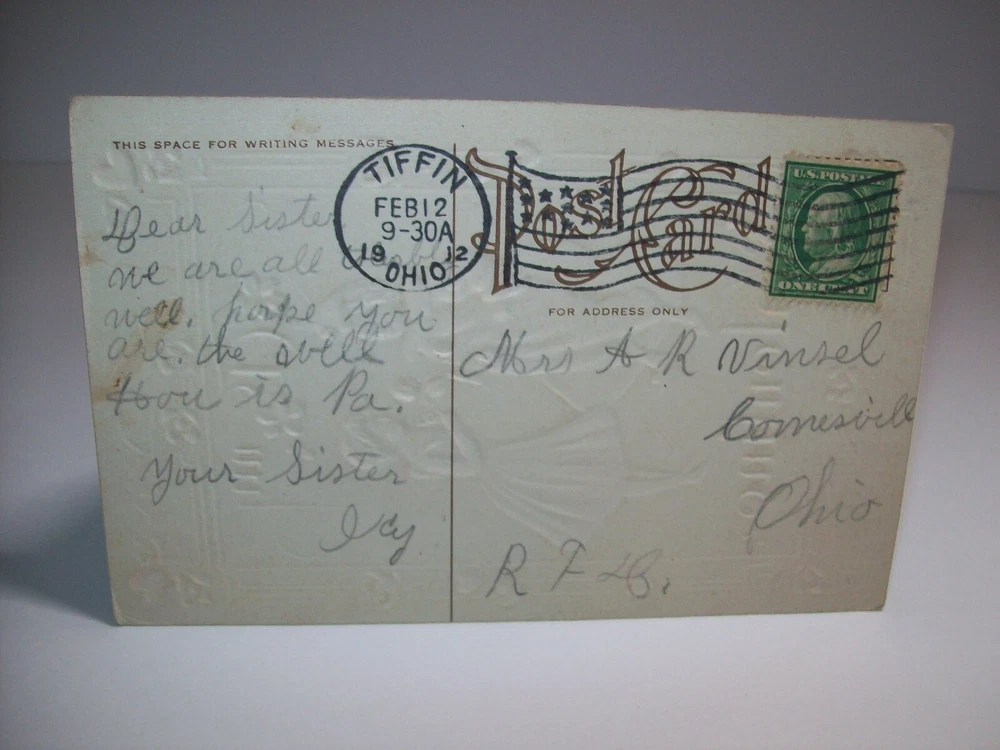 THIS SPACE FOR WRITING MESSAGES
Post Card
TIFFIN
FEB 12
9-30A
19 12
OHIO
U.S. POSTAGE
ONE CENT
FOR ADDRESS ONLY
Dear Sister
we are all
well. hoope you
are. the well
How is Pa.
Your Sister
Mrs A R Vinsel
Ohio
R F D.